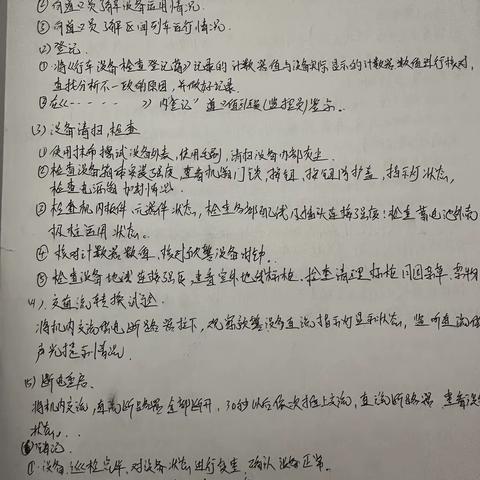 ②向道口员了解设备运用情况.
③向道口员了解区间列车运行情况.
(2)登记.
①将《行车设备检查登记簿》记录的计数器值与设备实际显示的计数器数值进行核对,
查找分析不一致的原因,并做好记录.
②在《------》内登记"道口值班员(监护员)签字.
(3)设备清扫,检查
①使用抹布擦拭设备外表,使用毛刷,清扫设备内部灰尘.
②检查设备箱体安装强度 查看机箱门锁,按钮,按钮防护盖,指示灯状态,
检查电源箱加封情况.
③检查机内插件,元器件状态,检查各部配线及插头连接强度:检查蓄电池外观
极柱运用状态.
④核对计数器数值,核对预警设备时钟.
⑤检查设备地线连接强度,查看室外地线标桩,检查清理标桩周围杂草,杂物
(4)、交直流转换试验.
将机内交流供电断路器拉下,观察预警设备直流指示灯显示状态,监听直流
声光提示情况.
(5)断电重启.
将机内交流,直流断路器全部断开,30秒以后依次推上交流,直流断路器 查看设
状态...
(6)销记.
①设备巡检完毕,对设备状态进行复查,确认设备正常.